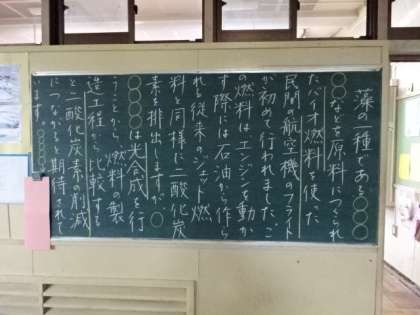 藻の一種である○○○
○○などを原料につくられ
たバイオ燃料を使った
民間の航空機のフライト
が初めて行われました。こ
の燃料はエンジンを動か
す際には石油から作ら
れる従来のジェット燃
料と同様に二酸化炭
素を排出しますが、○
○○○○は光合成を行
うことから、燃料の製
造工程から比較する
と二酸化炭素の削減
につながると期待されて
います。○○○○○